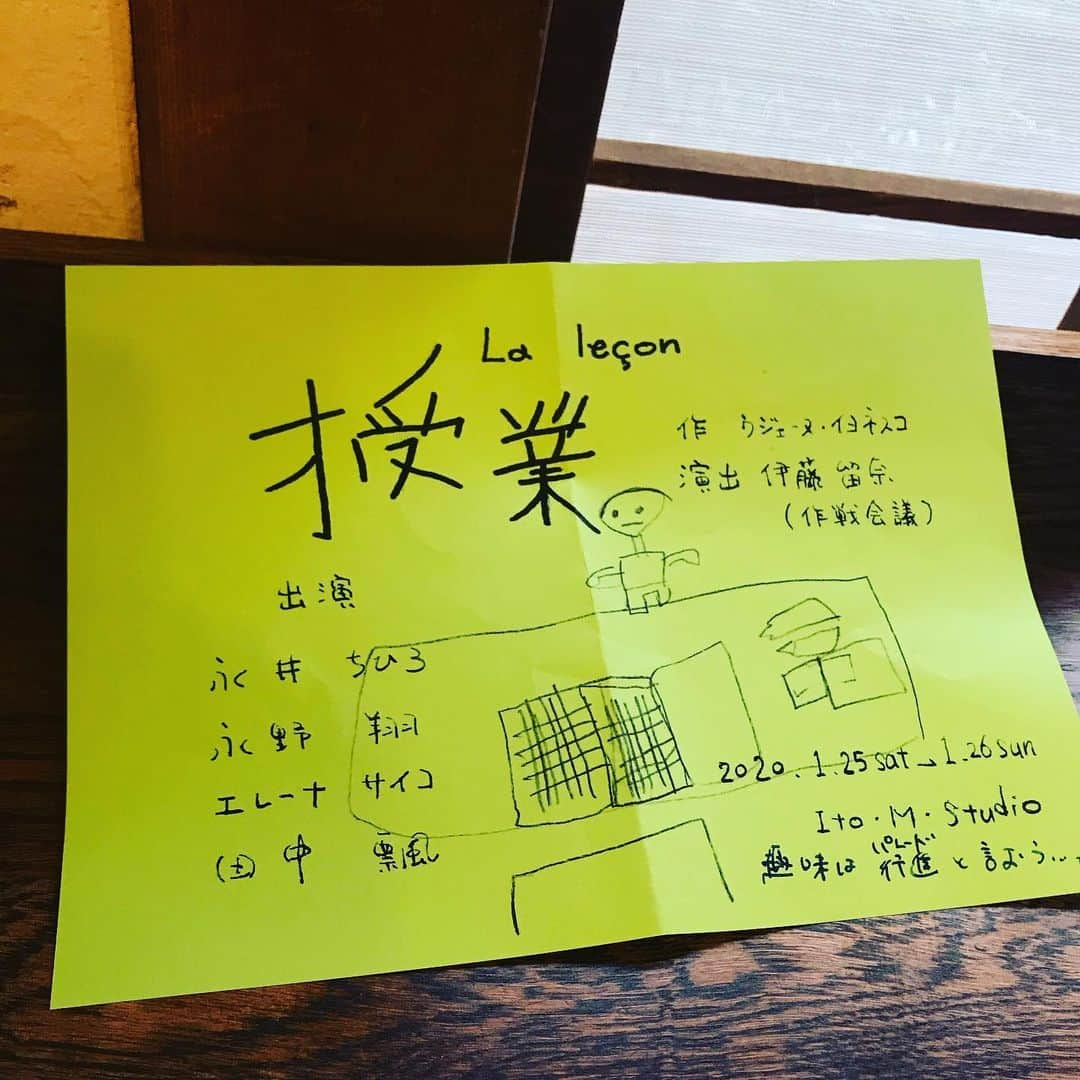 La leçon
授業
作 ウジェーヌ・イヨネスコ
演出 伊藤 笛奈
(作戦会議)
出演
永井 ちひろ
永野 翔
エレーナ サイコ
田中 飄風
2020.1.25sat→1.26sun
Ito・M・Studio
趣味は行進と言おう...
パレード